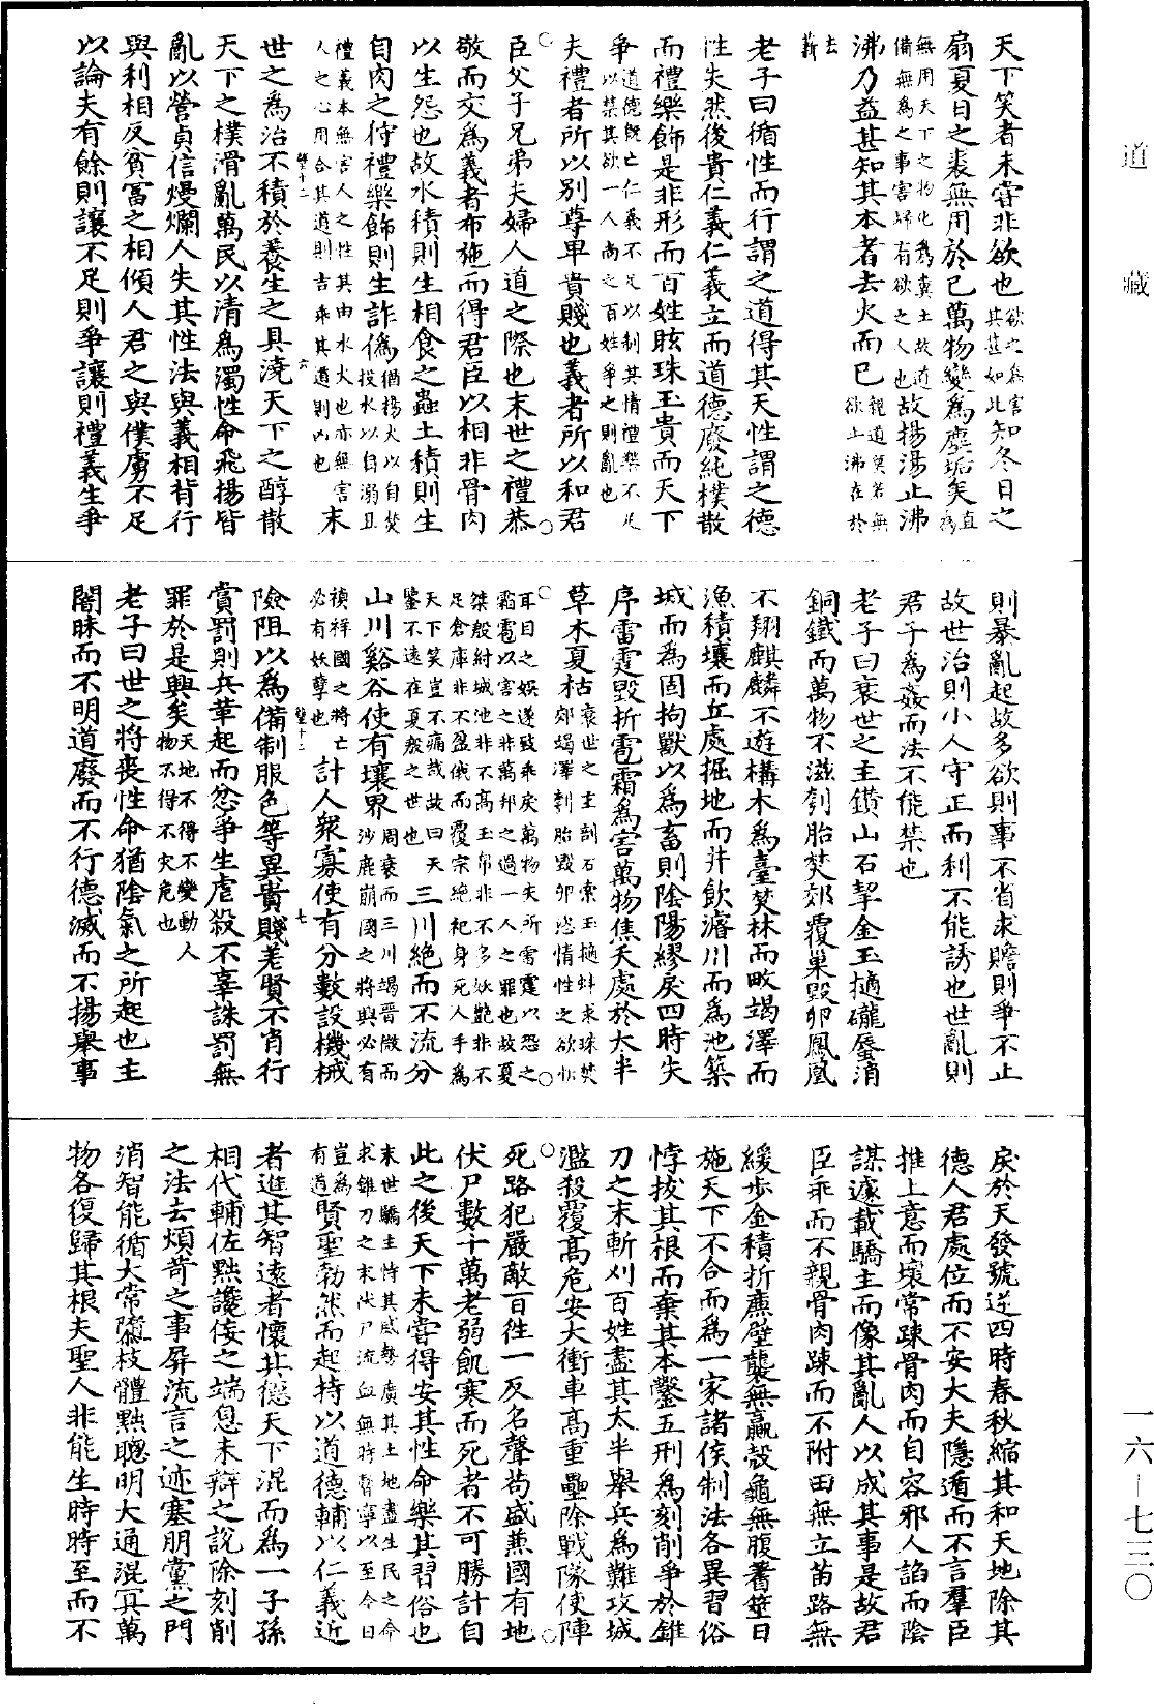 道藏
天下笑者未嘗非欲也欲之為害其甚如此知冬日之
扇夏日之裘無用於己萬物變為塵垢矣直為
無用天下之物化為糞土故道
備無為之事害歸有欲之人也故揚湯止沸
沸乃益甚知其本者去火而已欲上沸在於
去薪
老子曰循性而行謂之道得其天性謂之德
性失然後貴仁義仁義立而道德廢純樸散
而禮樂飾是非形而百姓眩珠玉貴而天下
爭道德既亡仁義不足以制其情禮樂不足以禁其欲一人尚之百姓爭之則亂也
夫禮者所以別尊卑貴賤也義者所以和君
臣父子兄弟夫婦人道之際也末世之禮恭
敬而交為義者布施而得君臣以相非骨肉
以生怨也故水積則生相食之蟲土積則生
自肉之狩禮樂飾則生詐偽猶揚火以自焚投水以自溺且
禮義本無害人之性其由水火也亦無害人之心用合其道則吉乖其道則凶也末
世之為治不積於養生之具澆天下之醇散
天下之樸滑亂萬民以清為濁性命飛揚皆
亂以營貞信熳爛人失其性法與義相背行
與利相反貧冨之相傾人君之與僕虜不足
以論夫有餘則讓不足則爭讓則禮義生爭
則暴亂起故多欲則事不省求贍則爭不止
故世治則小人守正而利不能誘也世亂則
君子為姦而法不能禁也
老子曰衰世之主鑽山石挈金玉擿礲蜃消
銅鐵而萬物不滋刳胎焚郊覆巢毀卵鳳凰
不翔麒麟不遊構木為臺焚林而畋竭澤而
漁積壤而丘處掘地而井飲濬川而為池築
城而為固拘獸以為畜則陰陽繆戾四時失
序雷霆毀折雹霜為害萬物焦夭處於太半
草木夏枯衰世之主刮石索玉擿蚌求珠焚郊竭澤刳胎毀卵恣情性之欲快
耳目之娛遂致乖戾萬物失所雷霆以怨之霜雹以害之非萬邦之過一人之罪也故夏
桀殷紂城池非不高玉帛非不多妖艷非不足倉庫非不盈俄而覆宗絕祀身死人手為
天下笑豈不痛哉故曰天鑒不遠在夏殷之世也三川絕而不流分
山川谿谷使有壤界周衰而三川竭晉微而沙鹿崩國之將興必有
禎祥國之將亡必有妖孽也計人衆寡使有分數設機械
險阻以為備制服色等異貴賤差賢不肖行
賞罰則兵革起而忿爭生虐殺不辜誅罰無
罪於是興矣天地不得不變動人物不得不灾危也
老子曰世之將喪性命猶陰氣之所起也主
闇昧而不明道廢而不行德滅而不揚舉事
戾於天發號逆四時春秋縮其和天地除其
德人君處位而不安大夫隱遁而不言羣臣
推上意而壞常踈骨肉而自容邪人諂而陰
謀遽載驕主而像其亂人以成其事是故君
臣乖而不親骨肉踈而不附田無立苗路無
緩步金積折廉壁襲無贏殻龜無腹蓍筮日
施天下不合而為一家諸侯制法各異習俗
悖拔其根而棄其本鑿五刑為刻削爭於錐
刀之末斬刈百姓盡其太半舉兵為難攻城
濫殺覆高危安大衝車高重壘除戰隊使陣
死路犯嚴敵百徃一反名聲苟盛兼國有地
伏尸數十萬老弱飢寒而死者不可勝計自
此之後天下未嘗得安其性命樂其習俗也
末世驕主恃其威勢廣其土地盡生民之命求錐刀之末伏尸流血無時暫寧以至今日
豈為有道賢聖勃然而起持以道德輔以仁義近
者進其智遠者懷其德天下混而為一子孫
相代輔佐黜讒佞之端息末辯之說除刻削
之法去煩苛之事屏流言之迹塞朋黨之門
消智能循大常隳枝體黜聰明大通混冥萬
物各復歸其根夫聖人非能生時時至而不
一六－七三〇